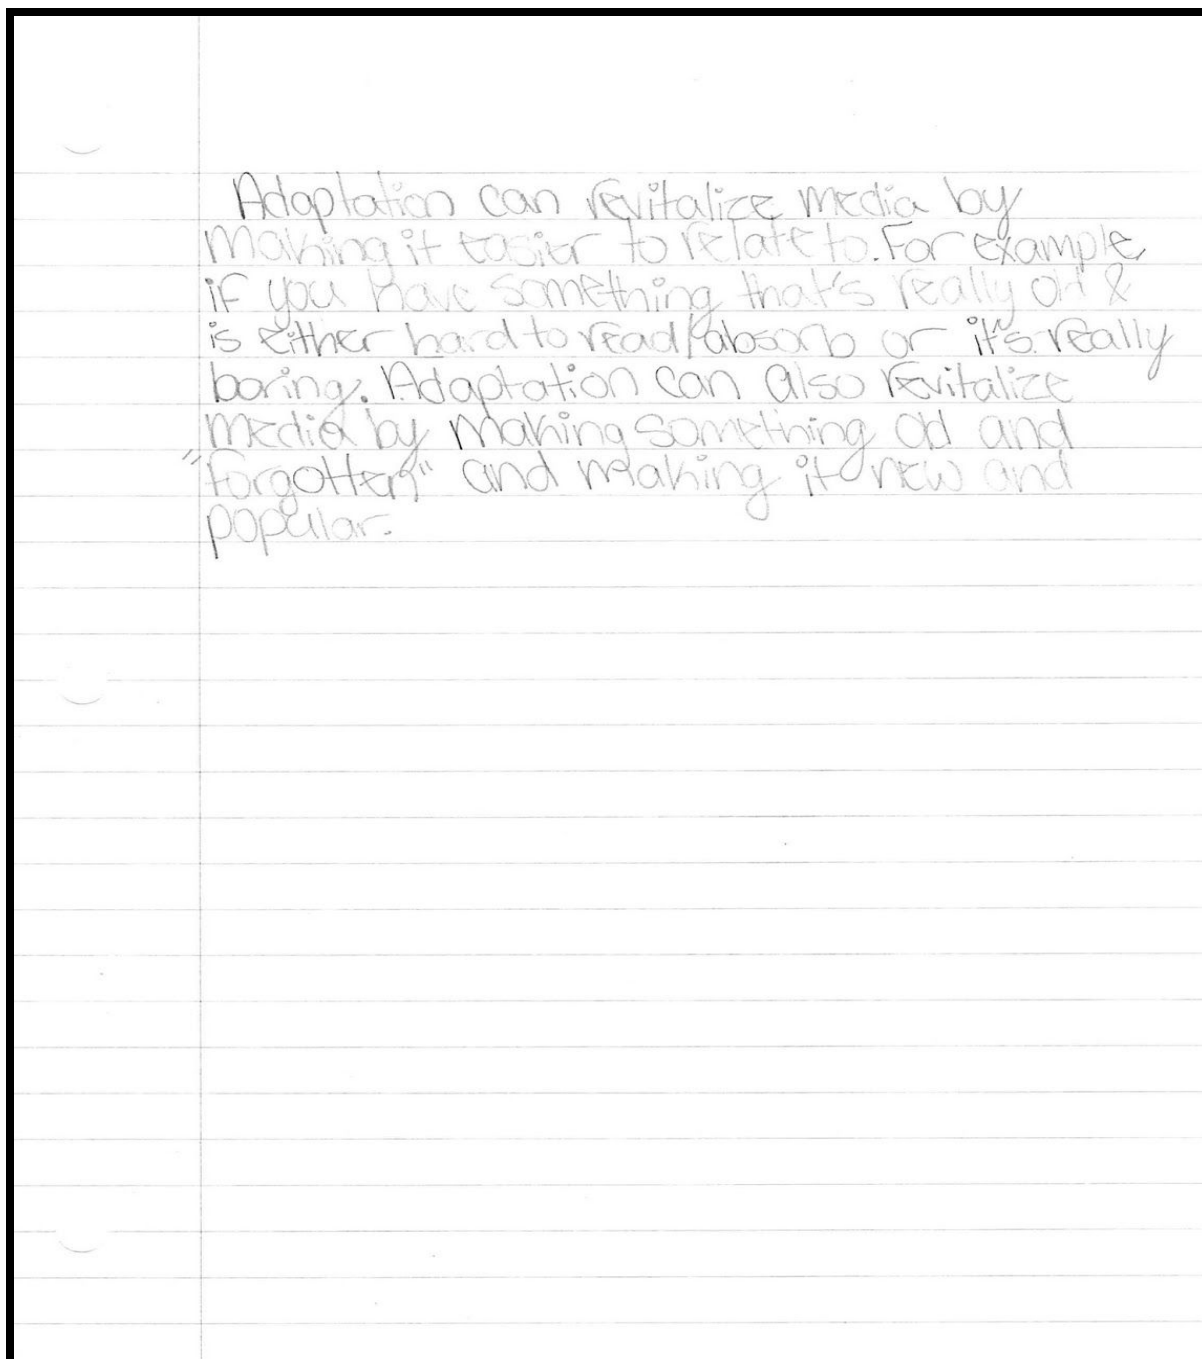 Adaptation can revitalize media by
making it easier to relate to. For example,
if you have something that's really old &
is either hard to read/absorb or it's really
boring. Adaptation can also revitalize
media by making something old and
"forgotten" and making it new and
popular.